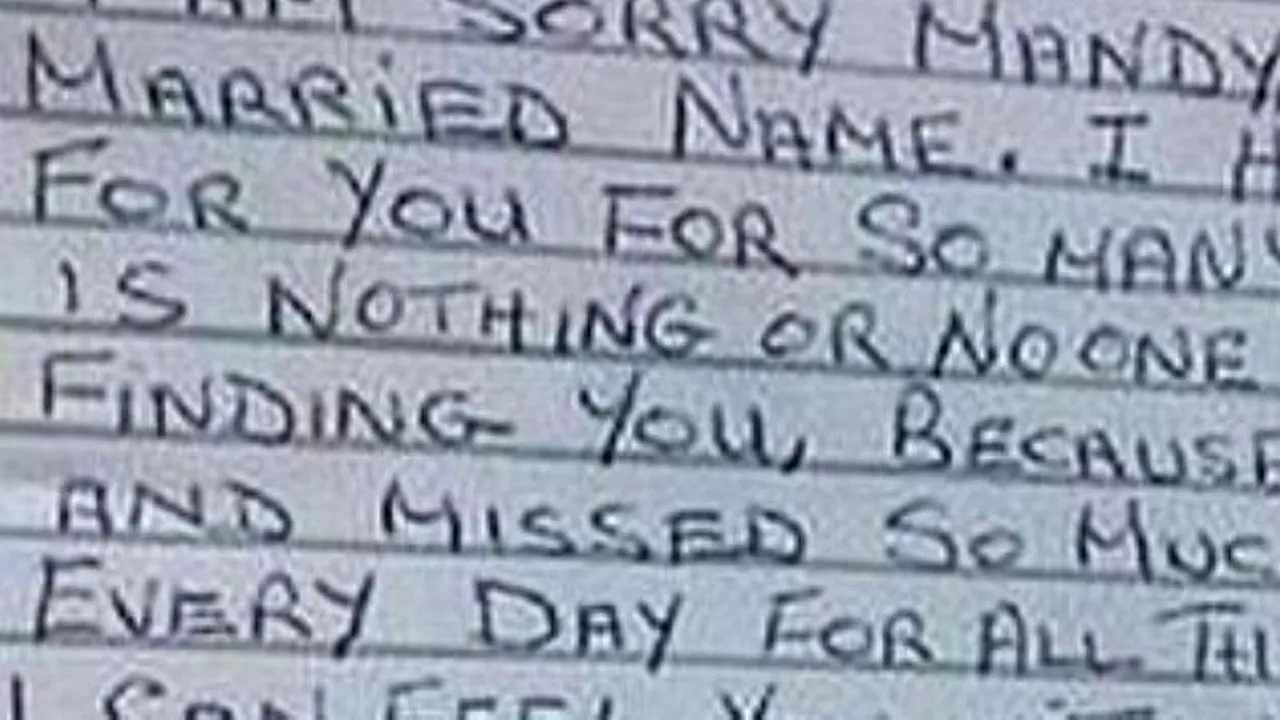 I AM SORRY MANDY
MARRiED NAME. I
FOR YOU FOR SO MANY
IS NOTHING OR NOONE
FiNDING YOU, BECAUSE
AND MISSED SO MUC
EVERY DAY FOR ALL TH
I CAN FEEL